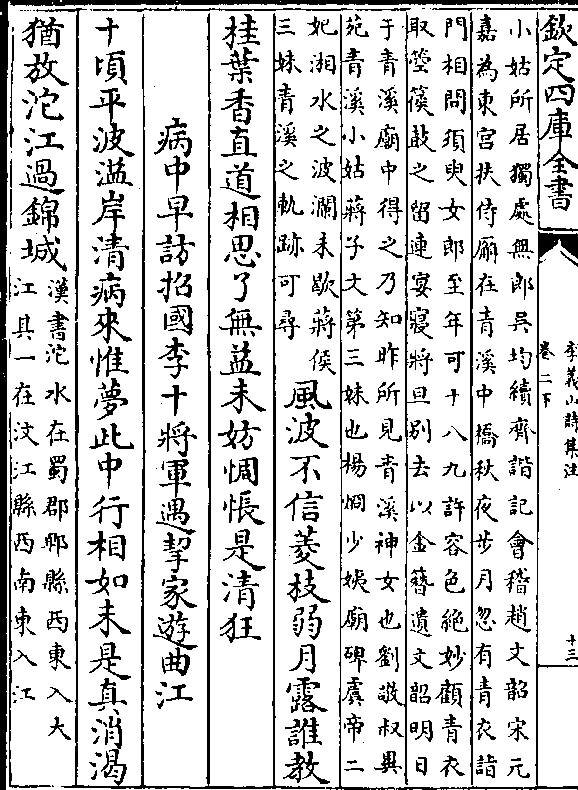 欽定四庫全書
李義山詩集注
卷二下
十三
小姑所居獨處無郎吳均續齊諧記會稽趙文韶宋元
嘉為東宮扶侍廨在青溪中橋秋夜步月忽有青衣詣
門相問須臾女郎至年可十八九許容色絶妙顧青衣
取箜篌鼓之留連宴寢將旦别去以金簪遺文韶明日
于青溪廟中得之乃知昨所見青溪神女也劉敬叔異
苑青溪小姑蔣子文第三妹也楊烱少姨廟碑虞帝二
妃湘水之波瀾未歇蔣侯
三妹青溪之軌跡可尋
風波不信菱枝弱月露誰教
桂葉香直道相思了無益未妨惆悵是清狂
病中早訪招國李十將軍遇挈家遊曲江
十頃平波溢岸清病來惟夢此中行相如未是真消渴
猶放沱江過錦城
漢書沱水在蜀郡郫縣西東入大
江其一在汶江縣西南東入江